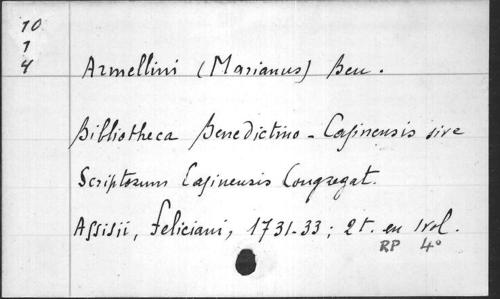 10
1
4
Armellini (Marianus) Ben.
Bibliotheca Benedictino-Casinensis sive
Scriptorum Casinensis Congregat.
Assisii, Feliciani, 1731-33; 2 t. en 1 vol.
RP 4°